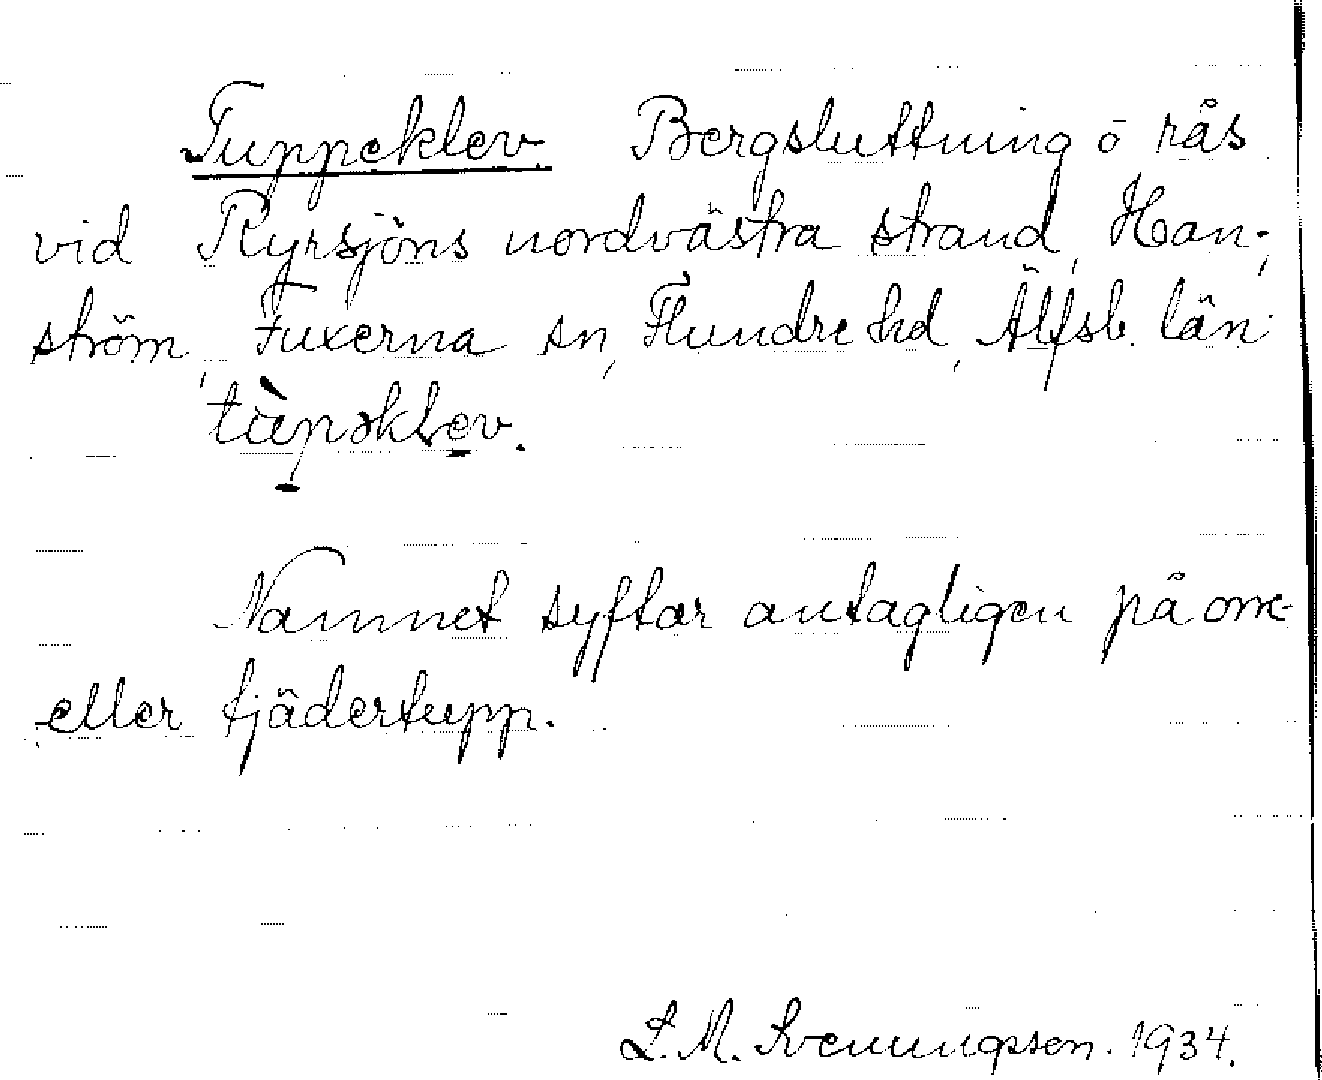 Tuppeklev. Bergsluttning o rås
vid Ryrsjöns nordvästra strand, Han-
ström, Fuxerna sn, Flundre hd, Älfsb. län.
tùpəklev.
Namnet syftar antagligen på orre-
eller tjädertupp.
L. M. Svenungsson. 1934.